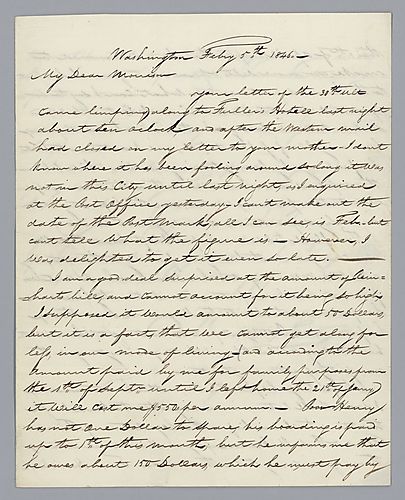 Washington Feby 5th 1846.—
My Dear Monson
your letter of the 30th ult
came limping along to Fullers Hotell last night
about ten oclock and after the Western mail
had closed on my letter to your mother. I dont
know where it has been fooling around so long it was
not in this City until last night, as I inquired
at the Post Office yesterday. I cant make out the
date of the Post Mark, all I can see is Feb. but
cant tell what the figure is — However, I
was delighted to get it even so late. —
I am a good deal surprised at the amount of
harts bill, and cannot account for it being so high
I supposed it would amount to about 15 Dollars,
but it is a fact, that we cannot get along for
less, in our mode of living, and according to the
amount paid by me for family purposes from
the 1st of Sept. until I left home the 21st of Jany
it will cost me $550 per annum — Poor Henry
has not one Dollar to spare, his boarding is paid
up to 1st of this month, but he informs me that
he owes about 150 Dollars, which he must pay by